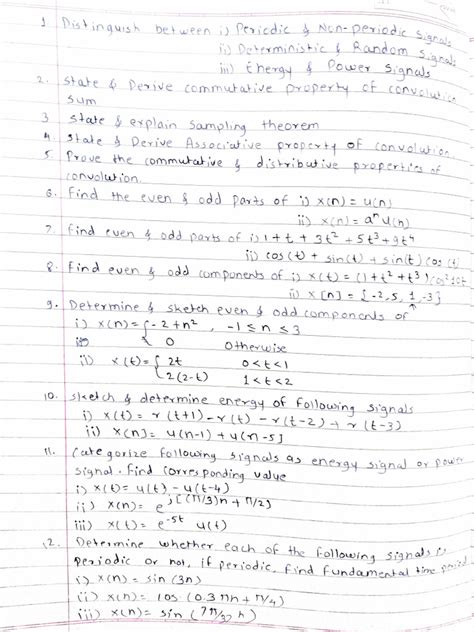 1. Distinguish between i) Periodic & Non-periodic Signals
ii) Deterministic & Random Signals
iii) Energy & Power Signals
2. State & Derive commutative property of convolution
sum
3 State & explain sampling theorem
4. State & Derive Associative property of convolution.
5. Prove the commutative & distributive properties of
convolution.
6. Find the even & odd parts of i) x(n) = u(n)
ii) x(n) = aⁿ u(n)
7. Find even & odd parts of i) 1 + t + 3t² + 5t³ + 9t⁴
ii) cos(t) + sin(t) + sin(t) cos(t)
8. Find even & odd components of i) x(t) = (1+t²+t³) cos²10t
ii) x[n] = {-2, 5, 1, -3}
↑
9. Determine & sketch even & odd components of
i) x(n) = { -2+n² , -1 ≤ n ≤ 3
0 Otherwise
ii) x(t) = { 2t 0<t<1
2(2-t) 1<t<2
10. Sketch & determine energy of following signals
i) x(t) = r(t+1) - r(t) - r(t-2) + r(t-3)
ii) x[n] = u[n-1] + u[n-5]
11. Categorize following signals as energy signal or power
signal. Find corresponding value
i) x(t) = u(t) - u(t-4)
ii) x(n) = e^j[(π/3)n + π/2]
iii) x(t) = e^-5t u(t)
12. Determine whether each of the following signals is
periodic or not, if periodic, find fundamental time period
i) x(n) = sin(3n)
ii) x(n) = cos(0.3πn + π/4)
iii) x(n) = sin(7π/3 n)